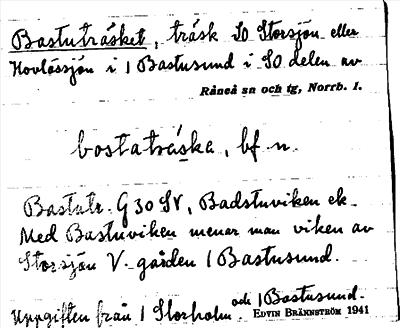 Bastuträsket, träsk SO Storsjön eller
Hovlössjön i 1 Bastusund i SO delen av
Råneå sn och tg, Norrb. l.
bostatráske, bf. n.
Bastutr. G 30 SV, Badstuviken ek.
Med Bastuviken menar man viken av
Storsjön V. gården 1 Bastusund.
Uppgiften från 1 Storholm och 1 Bastusund.
EDVIN BRÄNNSTRÖM 1941